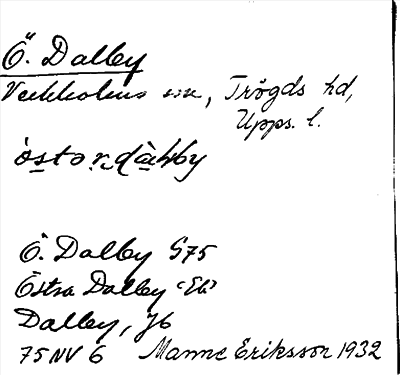 Ö. Dalby
Veckholms sn, Trögds hd,
Upps. l.
Ö. Dalby G75
Östra Dalby "Ek"
Dalby, J6
75 NV 6 Manne Eriksson 1932